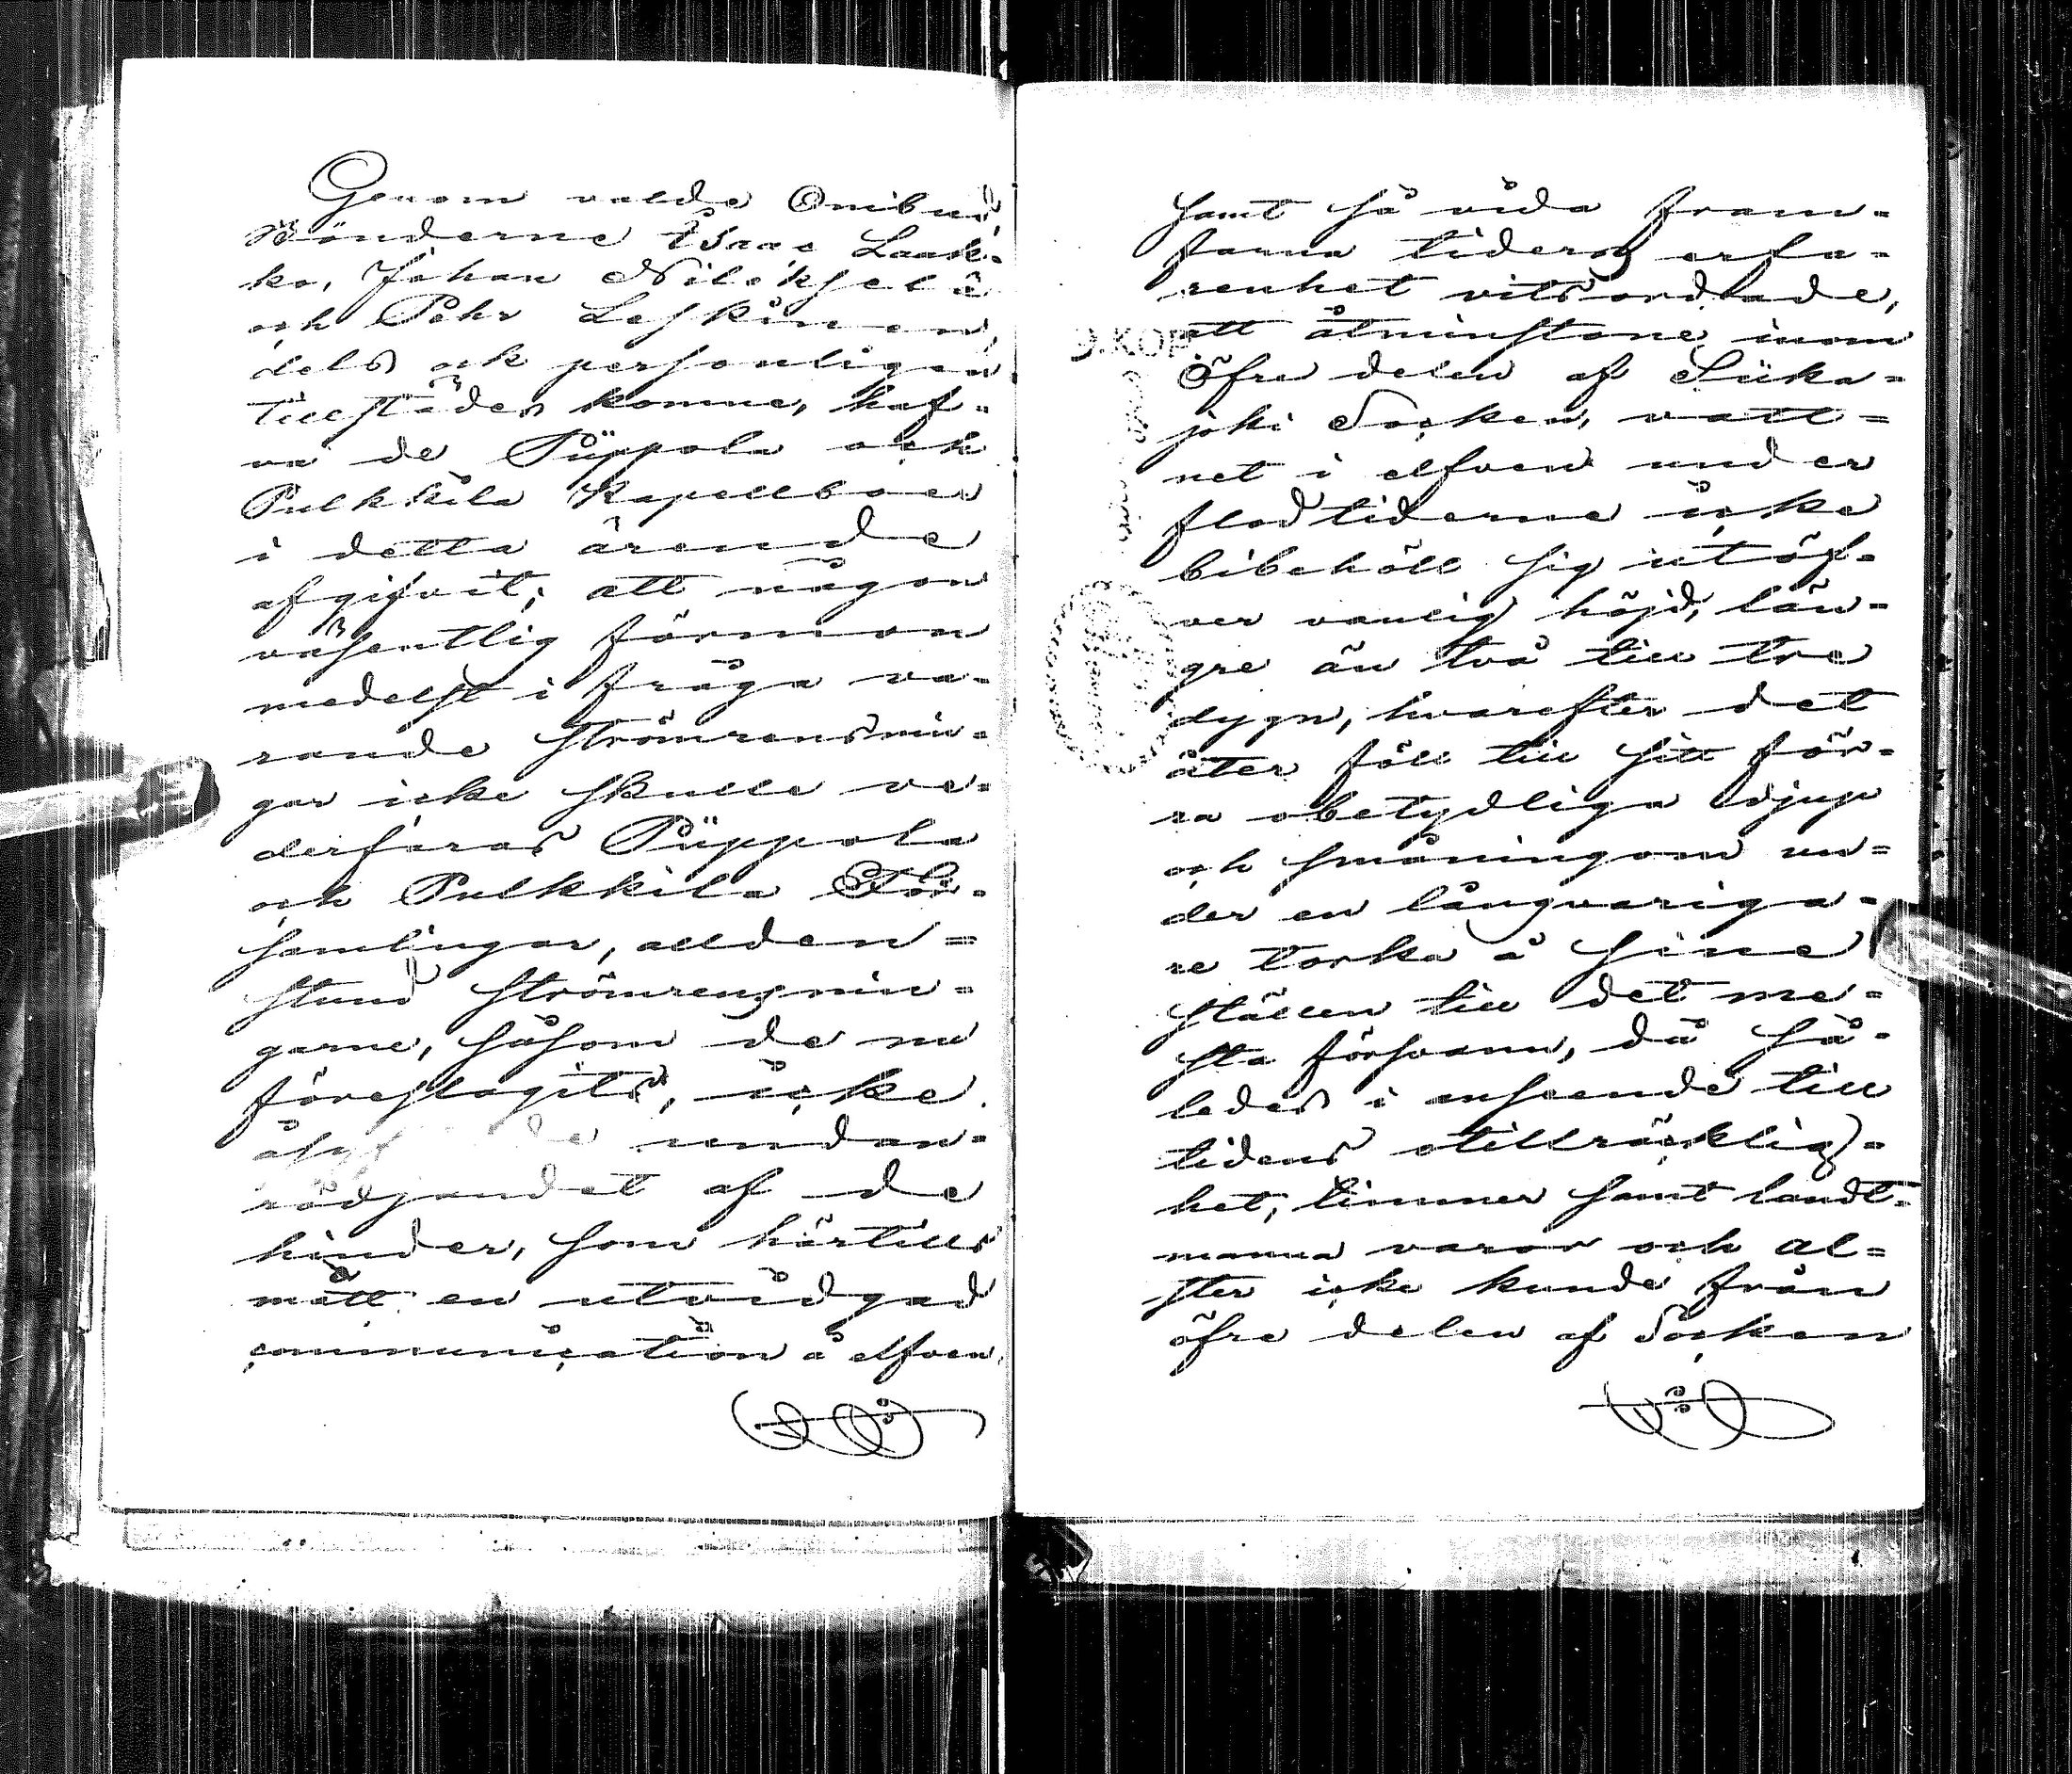 Genom valda Ombud,
Bönderne Isaac Laak=
ko, Johan Nilekselä
och Pehr Leskinen,
dels ock personligen
tillstädes komne, haf=
va de Piippola och
Pulkkila Kapellboer
i detta ärende
afgifvit; att någon
väsentlig förmon
medelst i fråga va=
rande strömrensnin=
gar icke skulle ve=
derfaras Piippola
och Pulkkila För=
samlingar, allden=
stund strömrensnin=
garne, såsom de nu
föreslagits, icke
undan=
rödjandet af de
hinder, som härtills
mött en utvidgad
communication å elfven,
samt så vida fram=
farna tiders erfa=
renhet vitsordade,
att åtminstone inom
öfre delen af Siika=
joki Socken, vatt=
net i elfven under
flodtiderne icke
bibehöll sig utöf=
ver vanlig höjd, län=
gre än två till tre
dygn, hvarefter det
åter föll till sitt för=
ra obetydliga djup
och småningom un=
der en långvariga=
re torka å sine
ställen till det me=
sta försvann, då så=
ledes i anseende till
tidens otillräcklig=
het, timmer samt landt=
manna varor och al=
ster icke kunde från
öfre delen af Socken